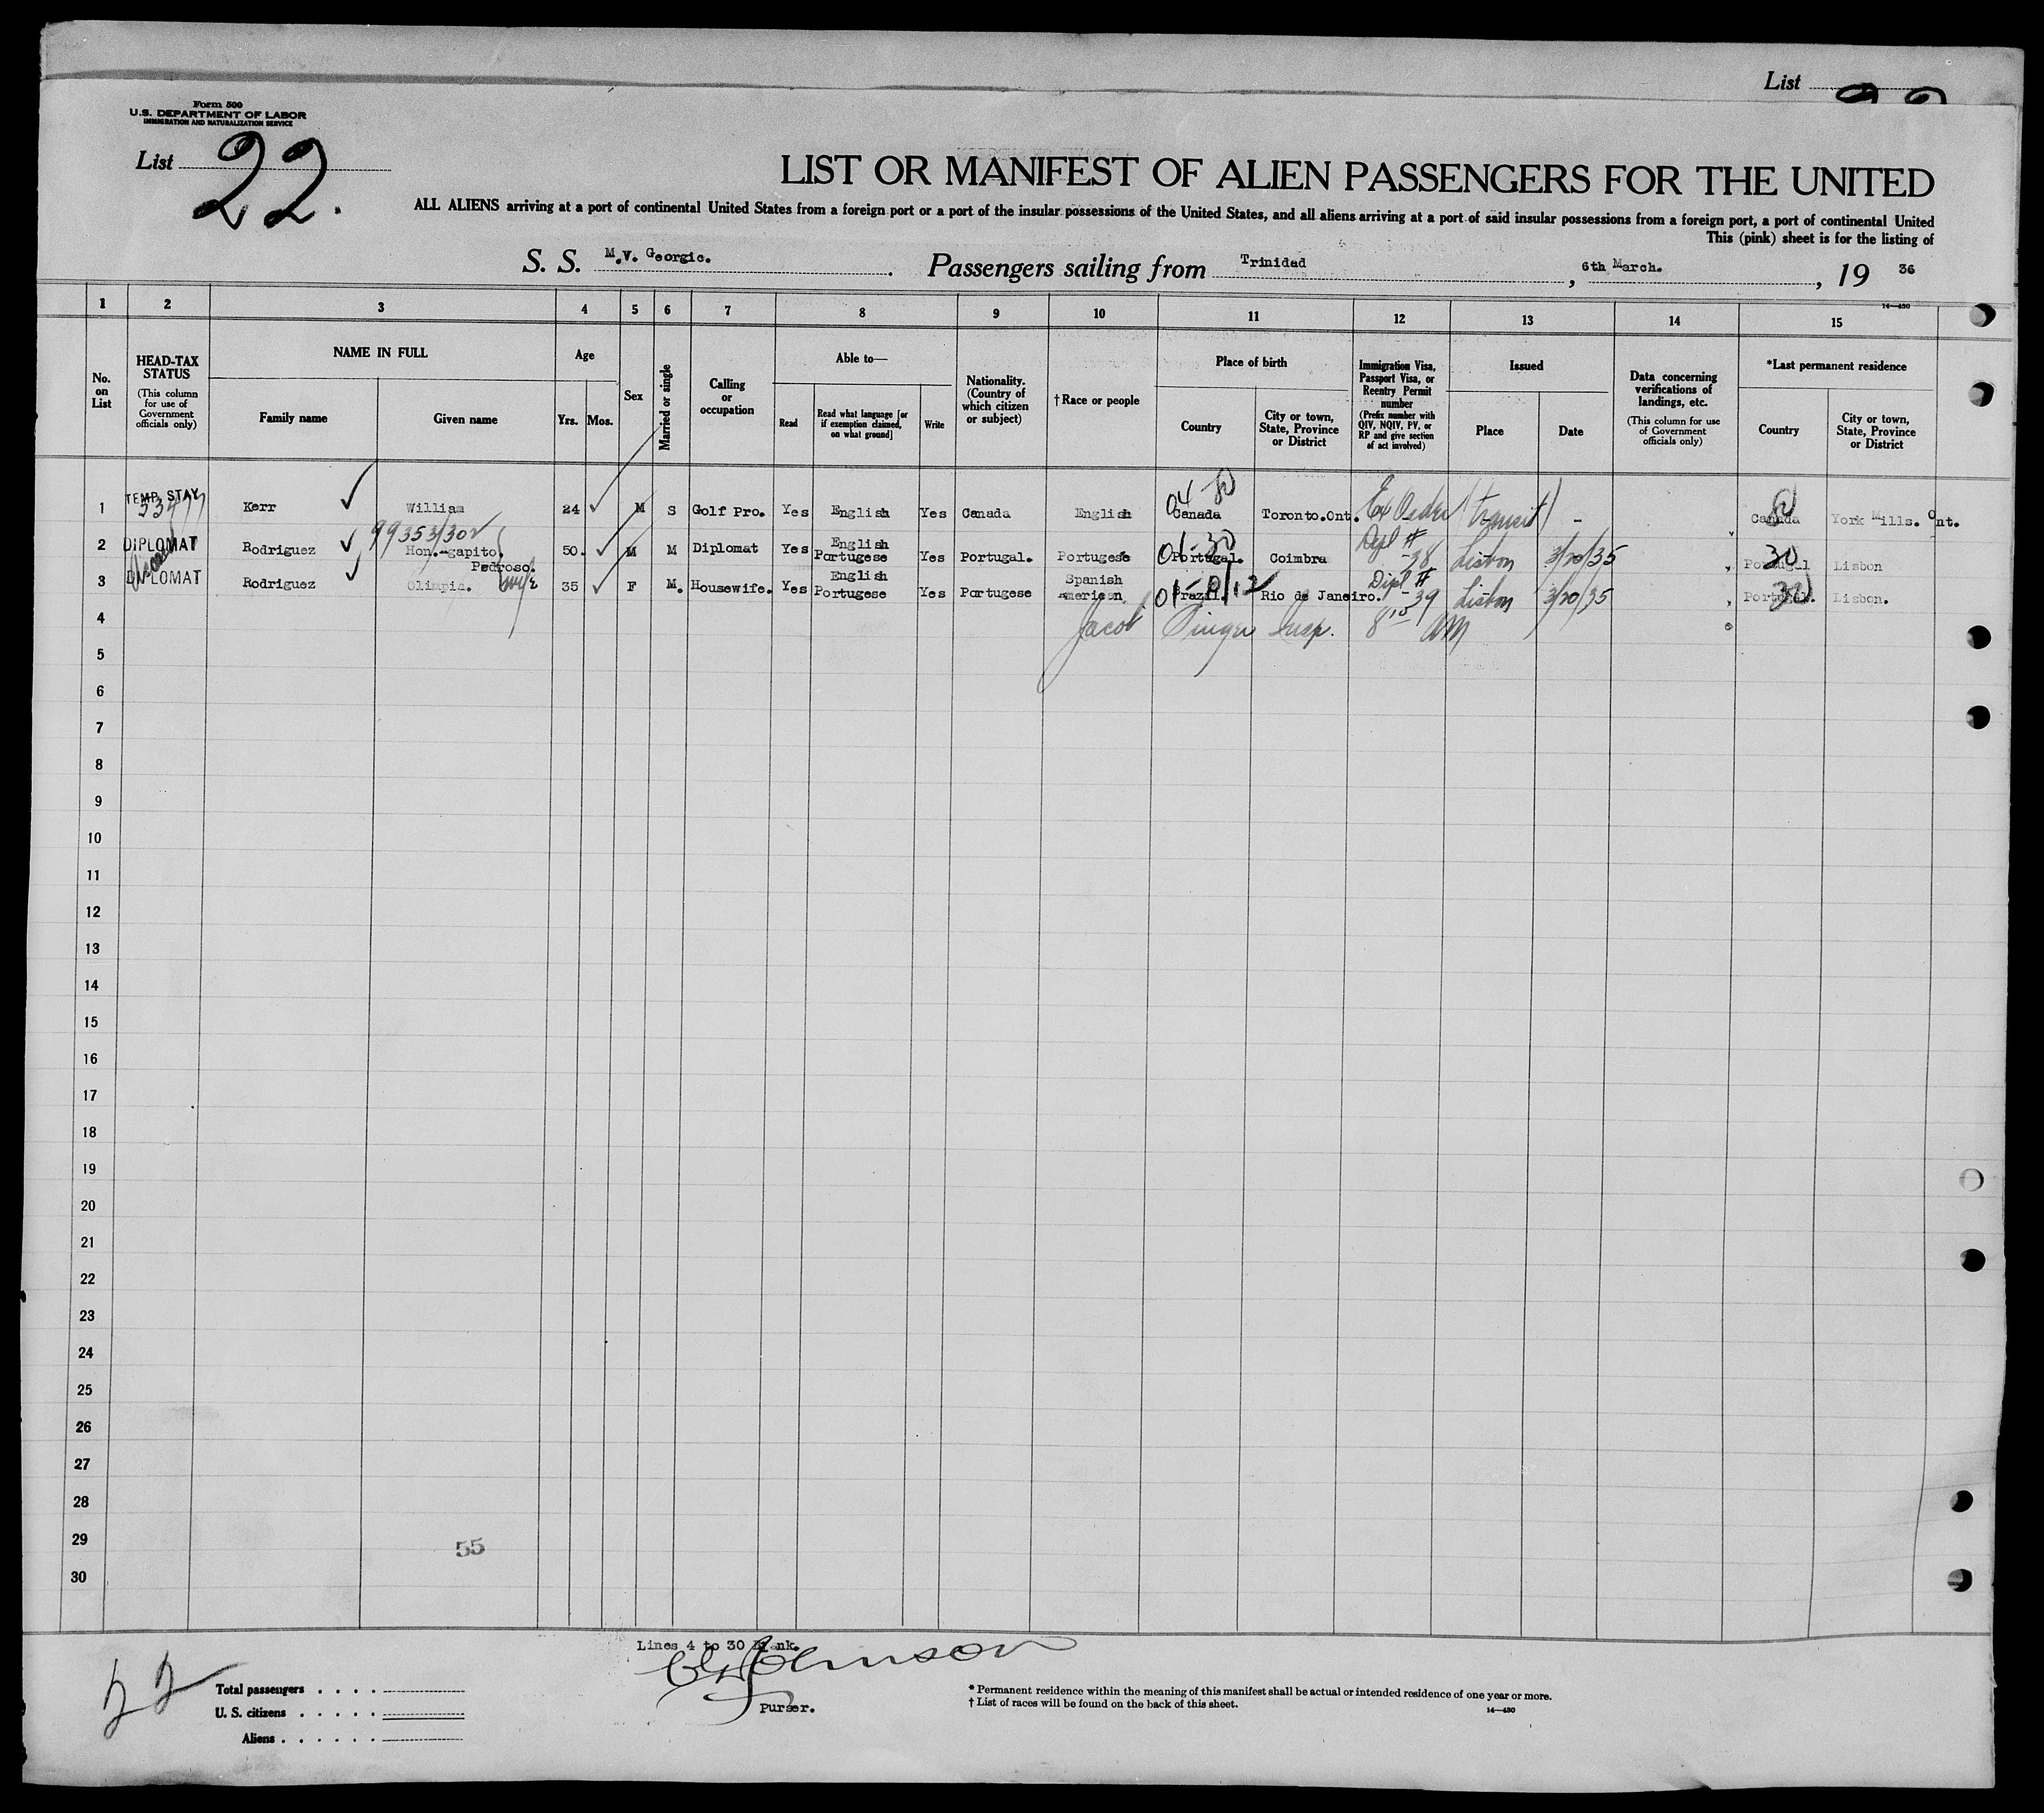 List
Form 500
U.S. DEPARTMENT OF LABOR
IMMIGRATION AND NATURALIZATION SERVICE
List 22.
LIST OR MANIFEST OF ALIEN PASSENGERS FOR THE UNITED
ALL ALIENS arriving at a port of continental United States from a foreign port or a port of the insular possessions of the United States, and all aliens arriving at a port of said insular possessions from a foreign port, a port of continental United
This (pink) sheet is for the listing of
S. S. M.V. Georgic. Passengers sailing from Trinidad , 6th March. , 19 36
14—430
1 2 3 4 5 6 7 8 9 10 11 12 13 14 15
No. on List
HEAD-TAX STATUS
(This column for use of Government officials only)
NAME IN FULL
Family name Given name
Age
Yrs. Mos.
Sex
Married or single
Calling or occupation
Able to—
Read
Read what language [or if exemption claimed, on what ground]
Write
Nationality. (Country of which citizen or subject)
†Race or people
Place of birth
Country
City or town, State, Province or District
Immigration Visa, Passport Visa, or Reentry Permit number
(Prefix number with QIV, NQIV, PV, or RP and give section of act involved)
Issued
Place Date
Data concerning verifications of landings, etc.
(This column for use of Government officials only)
*Last permanent residence
Country
City or town, State, Province or District
04-
TEMP. STAY
1 Kerr William 24 M S Golf Pro. Yes English Yes Canada English Canada Toronto.Ont. Ex Order (transit) - Canada York Mills. Ont.
99353/302
2 DIPLOMAT Rodriguez Hon.-gapito. Pedroso. 50. M M Diplomat Yes English Portugese Yes Portugal. Portugese 01-30 Portugal. Coimbra Dipl # -38 Lisbon 3/20/35 30 Portugal Lisbon
3 DIPLOMAT Rodriguez Olimpia. wife 35 F M. Housewife. Yes English Portugese Yes Portugese Spanish American Brazil. Rio de Janeiro. Dipl # -39 Lisbon 3/20/35 30 Portugal. Lisbon.
4 Jacob Insp. 8 15 AM
5
6
7
8
9
10
11
12
13
14
15
16
17
18
19
20
21
22
23
24
25
26
27
28
29
55
30
Lines 4 to 30 Blank.
Johnson
Purser.
22
Total passengers . . . .
U. S. citizens . . . . .
Aliens . . . . . .
* Permanent residence within the meaning of this manifest shall be actual or intended residence of one year or more.
† List of races will be found on the back of this sheet.
14—430